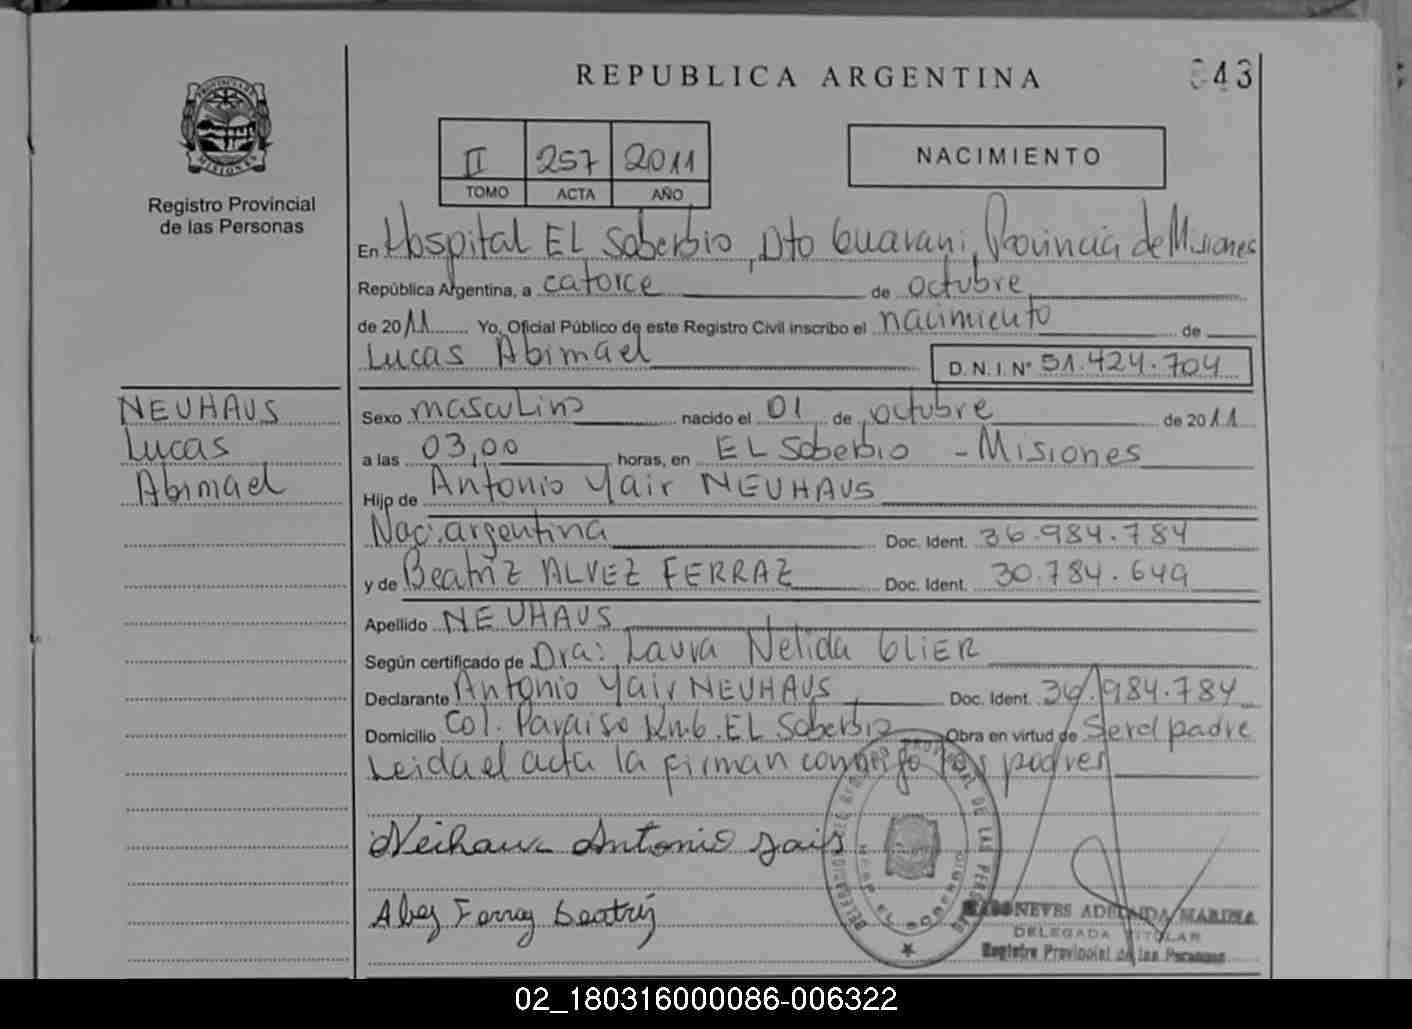 REPUBLICA ARGENTINA
043
PROVINCIA DE
MISIONES
Registro Provincial
de las Personas
II 257 2011
TOMO ACTA AÑO
NACIMIENTO
En Hospital EL Soberbio, Dto Guarani, Provincia de Misiones
República Argentina, a catorce de octubre
de 2011 Yo, Oficial Público de este Registro Civil inscribo el nacimiento de
Lucas Abimael
D.N.I. Nº 51.424.704
NEUHAUS
Lucas
Abimael
Sexo masculino nacido el 01 de octubre de 2011
a las 03,00 horas, en EL Soberbio - Misiones
Hijo de Antonio Yair NEUHAUS
Nac: argentina Doc. Ident. 36.984.784
y de Beatriz ALVEZ FERRAZ Doc. Ident. 30.784.649
Apellido NEUHAUS
Según certificado de Dra: Laura Nelida GLIER
Declarante Antonio Yair NEUHAUS Doc. Ident. 36.984.784
Domicilio Col. Paraiso Km.6. EL Soberbio Obra en virtud de Ser el padre
Leida el acta la firman conmigo los padres
Neihaus Antonio Jair
Alvez Ferraz Beatriz
NEVES ADELAIDA MARINA
DELEGADA TITULAR
Registro Provincial de las Personas
02_180316000086-006322